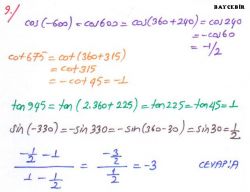 BAYCEBİR
9./
cos(-600)=cos600=cos(360+240)=cos240
=-cos60
=-1/2
cot675=cot(360+315)
=cot315
=-cot45=-1
tan945=tan(2.360+225)=tan225=tan45=1
sin(-330)=-sin330=-sin(360-30)=sin30=1/2
(-1/2 -1)/(1-1/2) = (-3/2)/(1/2) = -3 CEVAP:A